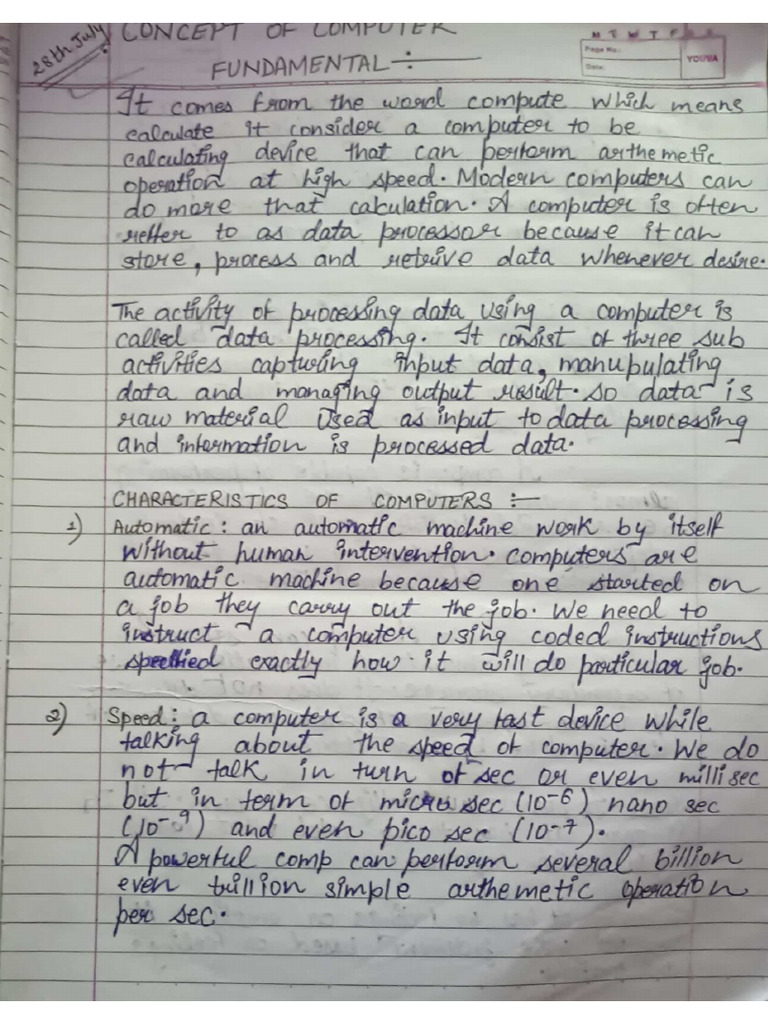 28th July
CONCEPT OF COMPUTER
FUNDAMENTAL :-
M T W T F S S
Page No.:
Date:
YOUVA
It comes from the word compute which means
calculate it consider a computer to be
calculating device that can perform arthemetic
operation at high speed. Modern computers can
do more that calculation. A computer is often
reffer to as data processor because it can
store, process and retrive data whenever desire.
The activity of processing data using a computer is
called data processing. It consist of three sub
activities capturing input data, manupulating
data and managing output result. so data is
raw material used as input to data processing
and information is processed data.
CHARACTERISTICS OF COMPUTERS :-
1) Automatic : an automatic machine work by itself
without human intervention. computers are
automatic machine because one started on
a job they carry out the job. We need to
instruct a computer using coded instructions
specified exactly how it will do particular job.
2) Speed : a computer is a very fast device while
talking about the speed of computer. We do
not talk in turn of sec or even milli sec
but in term of micro sec (10-6) nano sec
(10-9) and even pico sec (10-7).
A powerful comp can perform several billion
even trillion simple arthemetic operation
per sec.